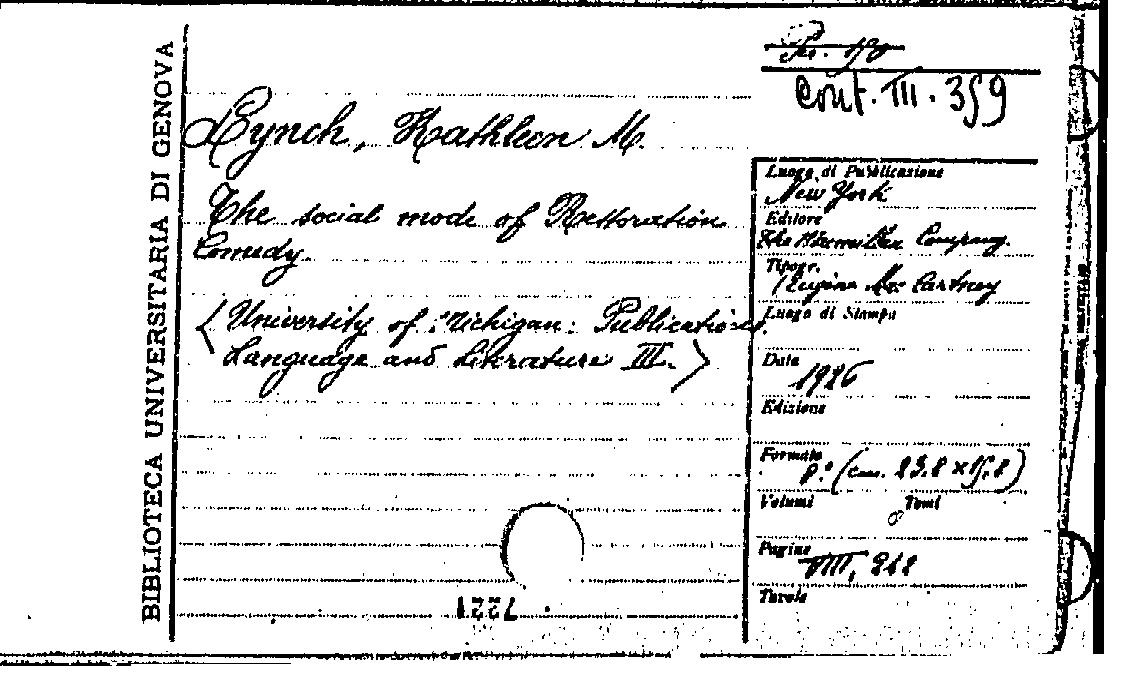 BIBLIOTECA UNIVERSITARIA DI GENOVA
Cont. III. 359
Lynch, Kathleen M.
The social mode of Restoration
Comedy.
(University of Michigan: Publications.
Language and Literature III.)
Luogo di Pubblicazione
New York
Editore
The Macmillan Company.
Tipogr.
Eugene Mc Cartney
Luogo di Stampa
Data
1926
Edizione
Formato
8.° (cm. 23,8 x 15,8)
Volumi Tomi
Pagine
VIII, 242
Tavole